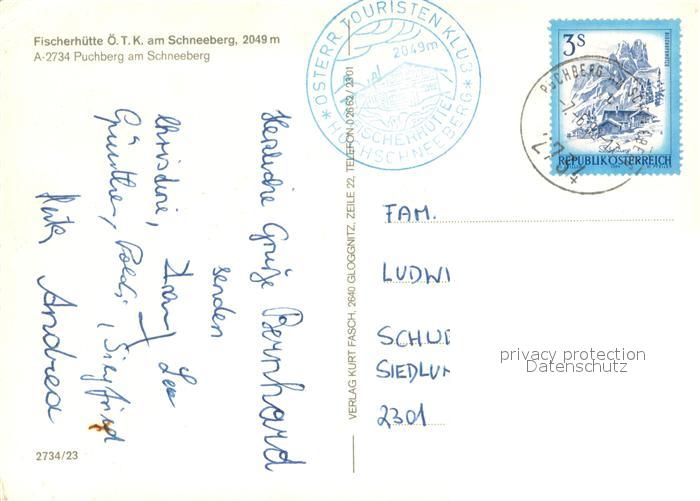 Fischerhütte Ö.T.K. am Schneeberg, 2049 m
A-2734 Puchberg am Schneeberg
ÖSTERR. TOURISTEN KLUB
2049m
FISCHERHÜTTE
HOCHSCHNEEBERG
3 S
REPUBLIK ÖSTERREICH
PUCHBERG AM SCHNEEBERG
2734
Herzliche Grüße
senden
Bernhard
Christine,
Franz, Leo
Günther, Poldi, Siegfried
Andrea
VERLAG KURT FASCH, 2640 GLOGGNITZ, ZEILE 22, TELEFON 02662/2301
FAM.
LUDWI
SCHUE
SIEDLUN
2301
privacy protection
Datenschutz
2734/23